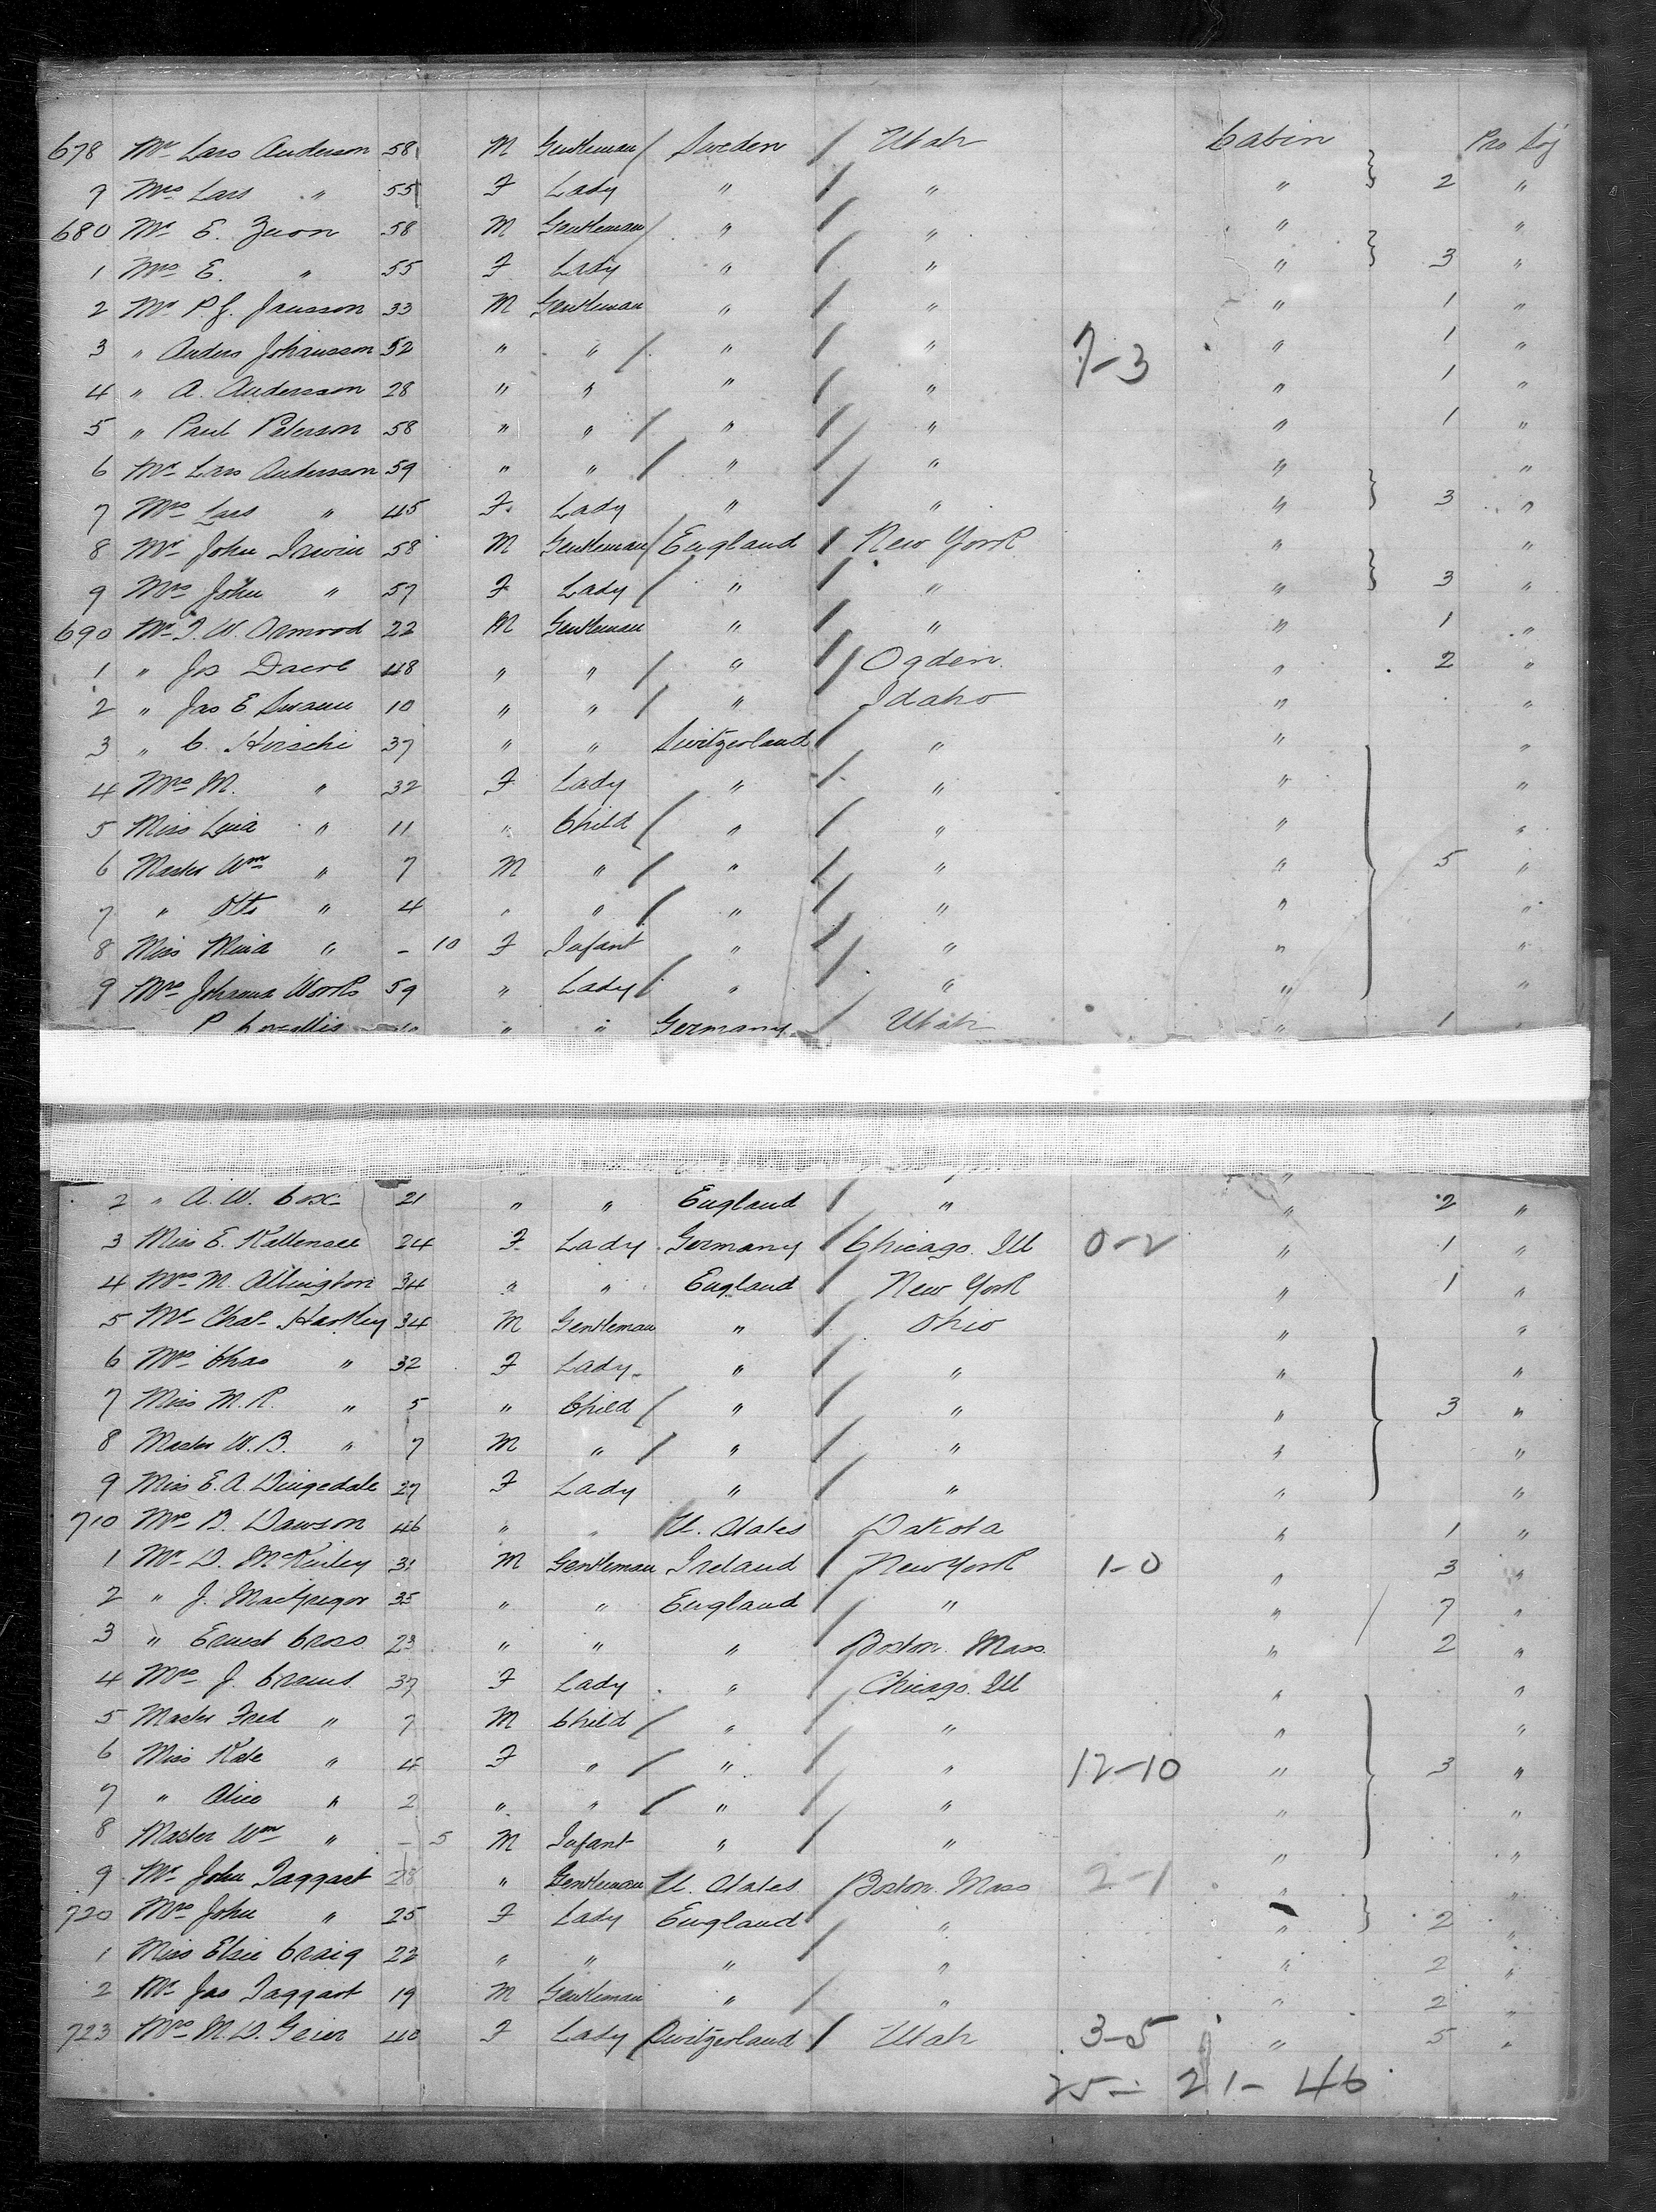 678 Mr Lars Anderson 58 M Gentleman / Sweden / Utah Cabin Pro Soj
9 Mrs Lars " 55 F Lady " / " " 2 "
680 Mr E. 58 M Gentleman / " / " " "
1 Mrs E. " 55 F Lady " / " " 3 "
2 Mr P.J. Jansson 33 M Gentleman " / " " 1 "
3 " Anders Johansson 52 " " / " / " 7-3 " 1 "
4 " A. Anderson 28 " " " / " " 1 "
5 " Paul Peterson 58 " " / " / " " 1 "
6 Mr Lars Anderson 59 " " / " / " " "
7 Mrs Lars " 45 F Lady " / " " 3 "
8 Mr John Irwin 58 M Gentleman / England / New York " "
9 Mrs John " 57 F Lady / " / " " 3 "
690 Mr W. Ormrod 22 M Gentleman " / " " 1 "
1 " Jos 48 " " / " / Ogden " 2 "
2 " Jas E Swann 10 " " / " / Idaho " "
3 " C. Hirschi 37 " " Switzerland / " " "
4 Mrs M. " 32 F Lady " / " " "
5 Miss " 11 " Child / " / " " "
6 Master Wm " 7 M " / " / " " 5 "
7 " Otto " 4 " " / " / " " "
8 Miss " - 10 F Infant " / " " "
9 Mrs Johanna 59 " Lady / " / " " "
P " " Germany / Utah " 1
2 " A.W. Cox 21 " " England / " " 2 "
3 Miss E. 24 F Lady Germany / Chicago Ill 0-2 " 1 "
4 Mrs M. Allington 34 " " England / New York " 1 "
5 Mr Chas Hartley 34 M Gentleman " / Ohio " "
6 Mrs Chas " 32 F Lady " / " " "
7 Miss M.R. " 5 " Child / " / " " 3 "
8 Master W.B. " 7 M " / " / " " "
9 Miss E.A. Dingedale 27 F Lady " / " " "
710 Mrs B. Dawson 46 " " U. States Dakota " 1 "
1 Mr D. McKinley 31 M Gentleman Ireland / New York 1-0 " 3 "
2 " J. MacGregor 35 " " England / " " / 7 "
3 " Ernest Cross 23 " " " / Boston Mass " 2 "
4 Mrs J. 37 F Lady " / Chicago Ill " "
5 Master Fred " 7 M Child / " / " " "
6 Miss Kate " 4 F " / " / " 12-10 " 3 "
7 " Alice " 2 " " / " / " " "
8 Master Wm " - 5 M Infant " / " " "
9 Mr John Taggart 28 " Gentleman U. States Boston Mass 2-1 " "
720 Mrs John " 25 F Lady England / " " 2 "
1 Miss Elsie Craig 22 " " " " " 2 "
2 Mr Jas Taggart 19 M Gentleman " / " " 2 "
723 Mrs M.D. Geier 40 F Lady Switzerland / Utah 3-5 " 5 "
25 - 21 - 46